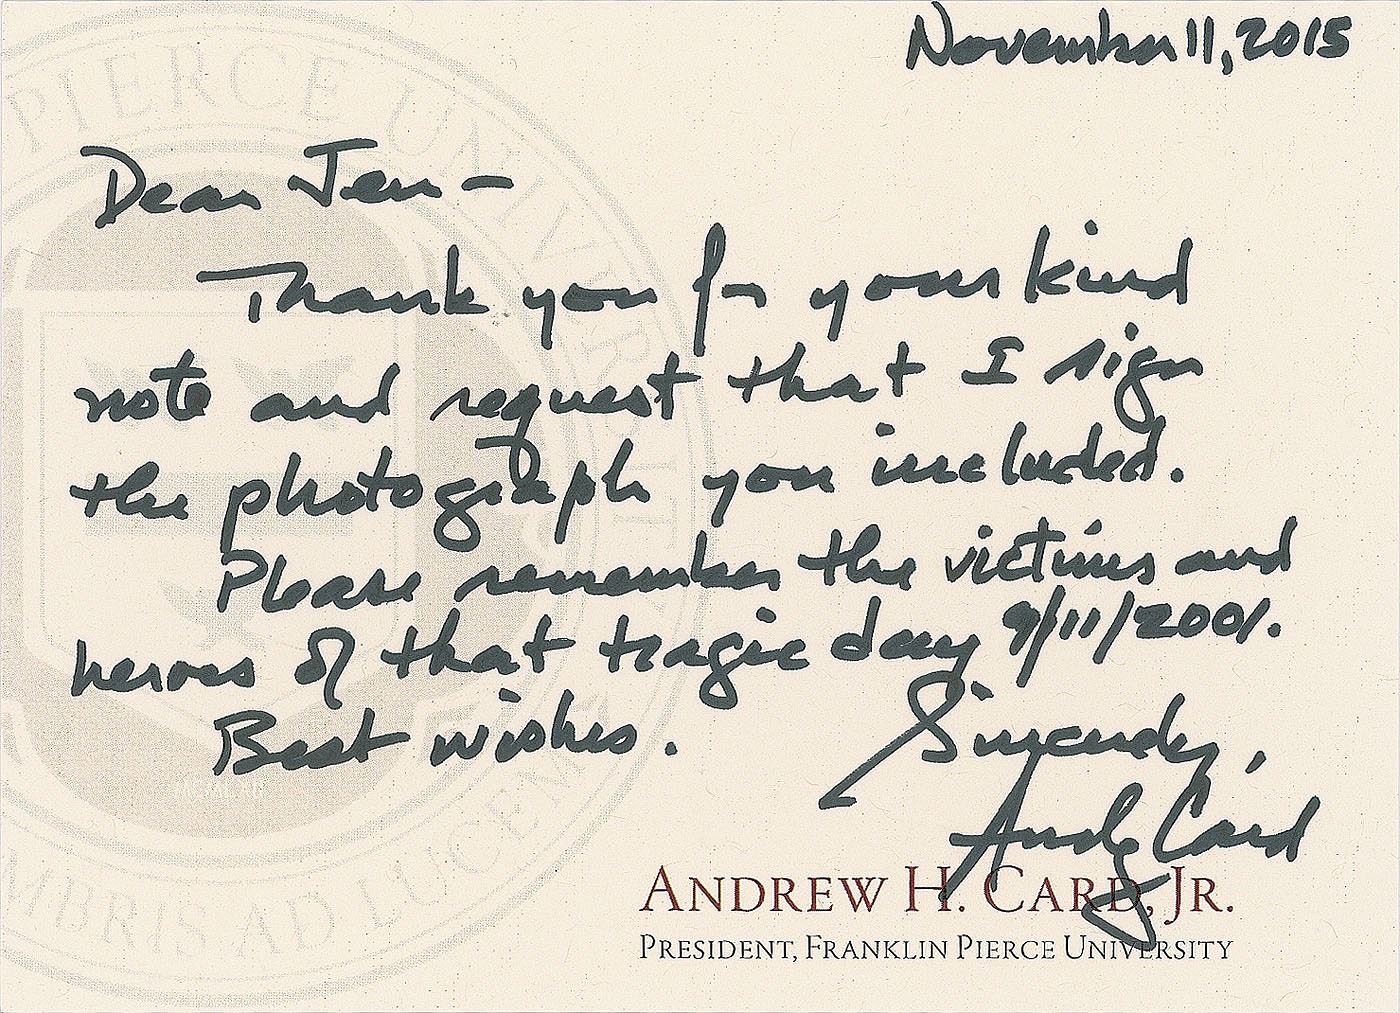 November 11, 2015
Dear Jen –
Thank you for your kind
note and request that I sign
the photograph you included.
Please remember the victims and
heroes of that tragic day 9/11/2001.
Best wishes.
Sincerely,
Andy Card
ANDREW H. CARD, JR.
PRESIDENT, FRANKLIN PIERCE UNIVERSITY
PIERCE UNIVERSITY
MBRIS AD LUCEM